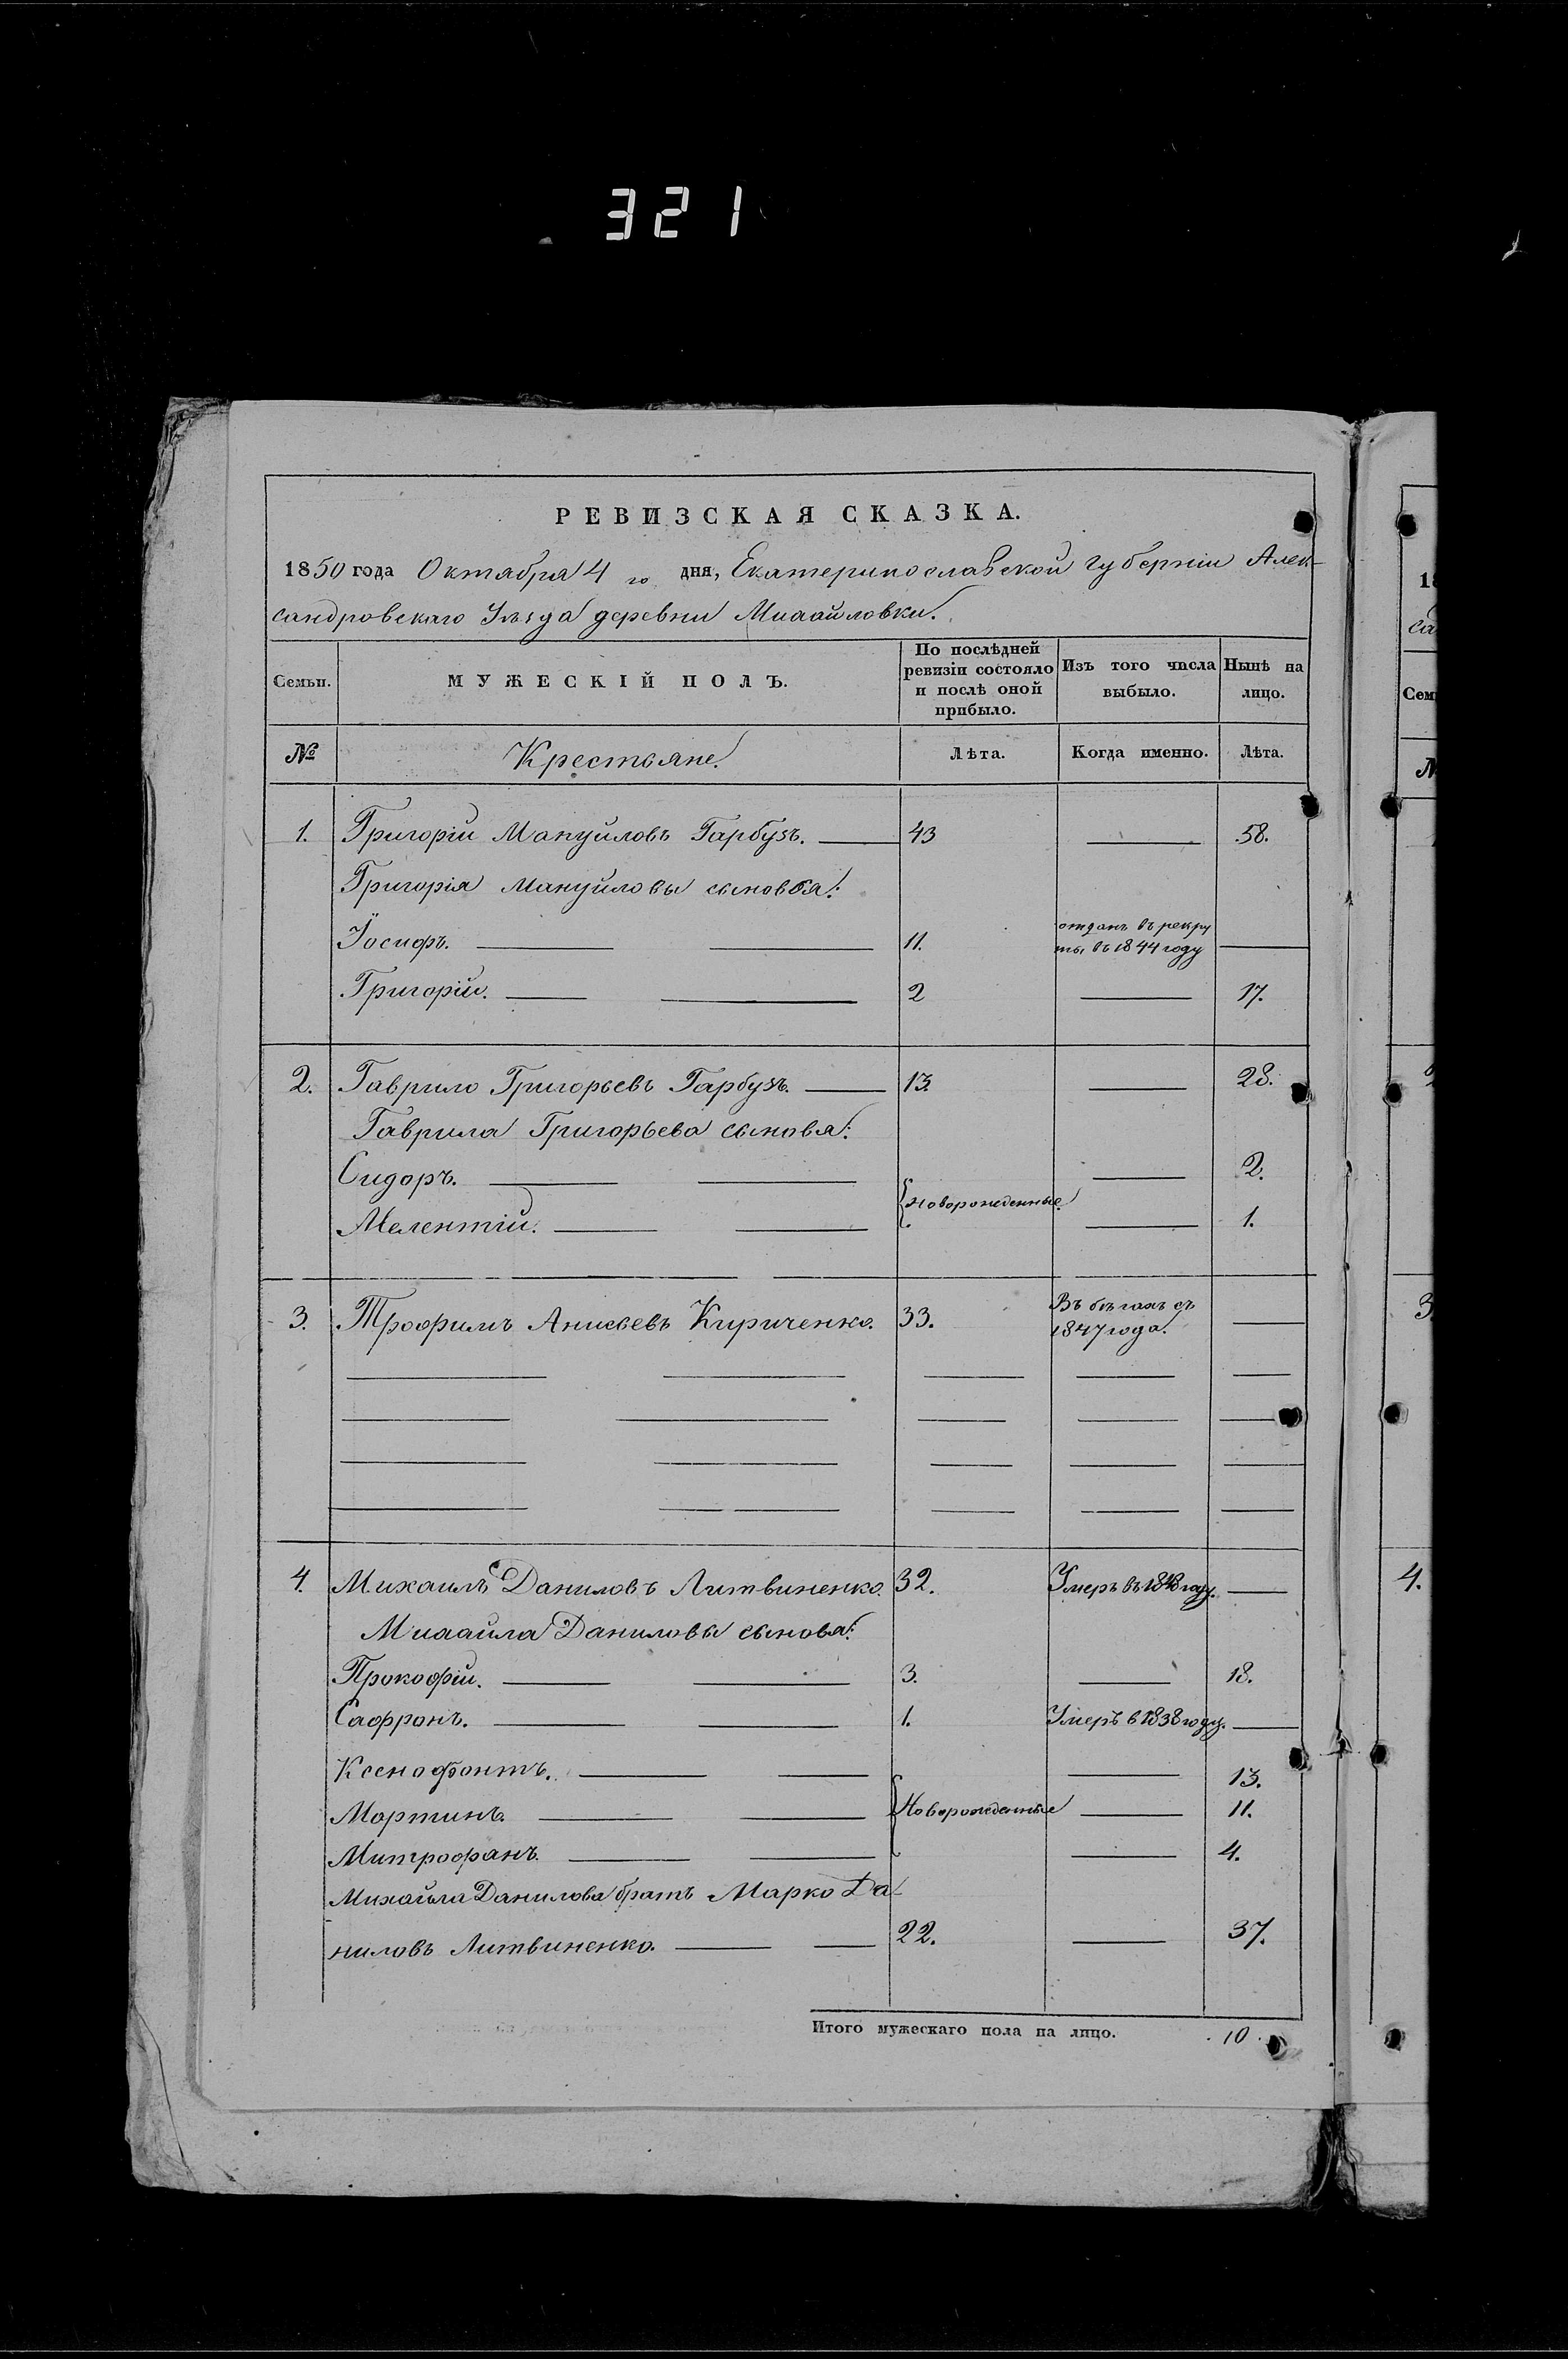 321
РЕВИЗСКАЯ СКАЗКА.
1850 года Октября 4 го дня, Екатеринославской губерніи Алек-
сандровскаго Уѣзда деревни Михайловки.
Семьи. МУЖЕСКІЙ ПОЛЪ. По послѣдней ревизіи состояло и послѣ оной прибыло. Изъ того числа выбыло. Нынѣ на лицо.
№ Крестьяне. Лѣта. Когда именно. Лѣта.
1. Григорій Мануйловъ Гарбузъ. 43 58.
Григорія Мануйловы сыновья:
Іосифъ. 11. отданъ въ рекру
ты въ 1844 году
Григорій. 2 17.
2. Гаврило Григорьевъ Гарбузъ. 13. 28.
Гаврила Григорьева сыновя:
Сидоръ. 2.
Новорожденные
Мелентій. 1.
3. Трофимъ Анисьевъ Кириченко. 33. Въ бѣгахъ съ
1847 года.
4. Михаилъ Даниловъ Литвиненко. 32. Умеръ въ 1848 году.
Михайла Даниловы сыновя:
Прокофій. 3. 18.
Сафронъ. 1. Умеръ в 1838 году.
Ксенофонтъ. 13.
Мартинъ. Новорожденные 11.
Митрофанъ. 4.
Михайла Данилова братъ Марко Да-
ниловъ Литвиненко. 22. 37.
Итого мужескаго пола на лицо. 10
1
са
Сем
№
2
3.
4.